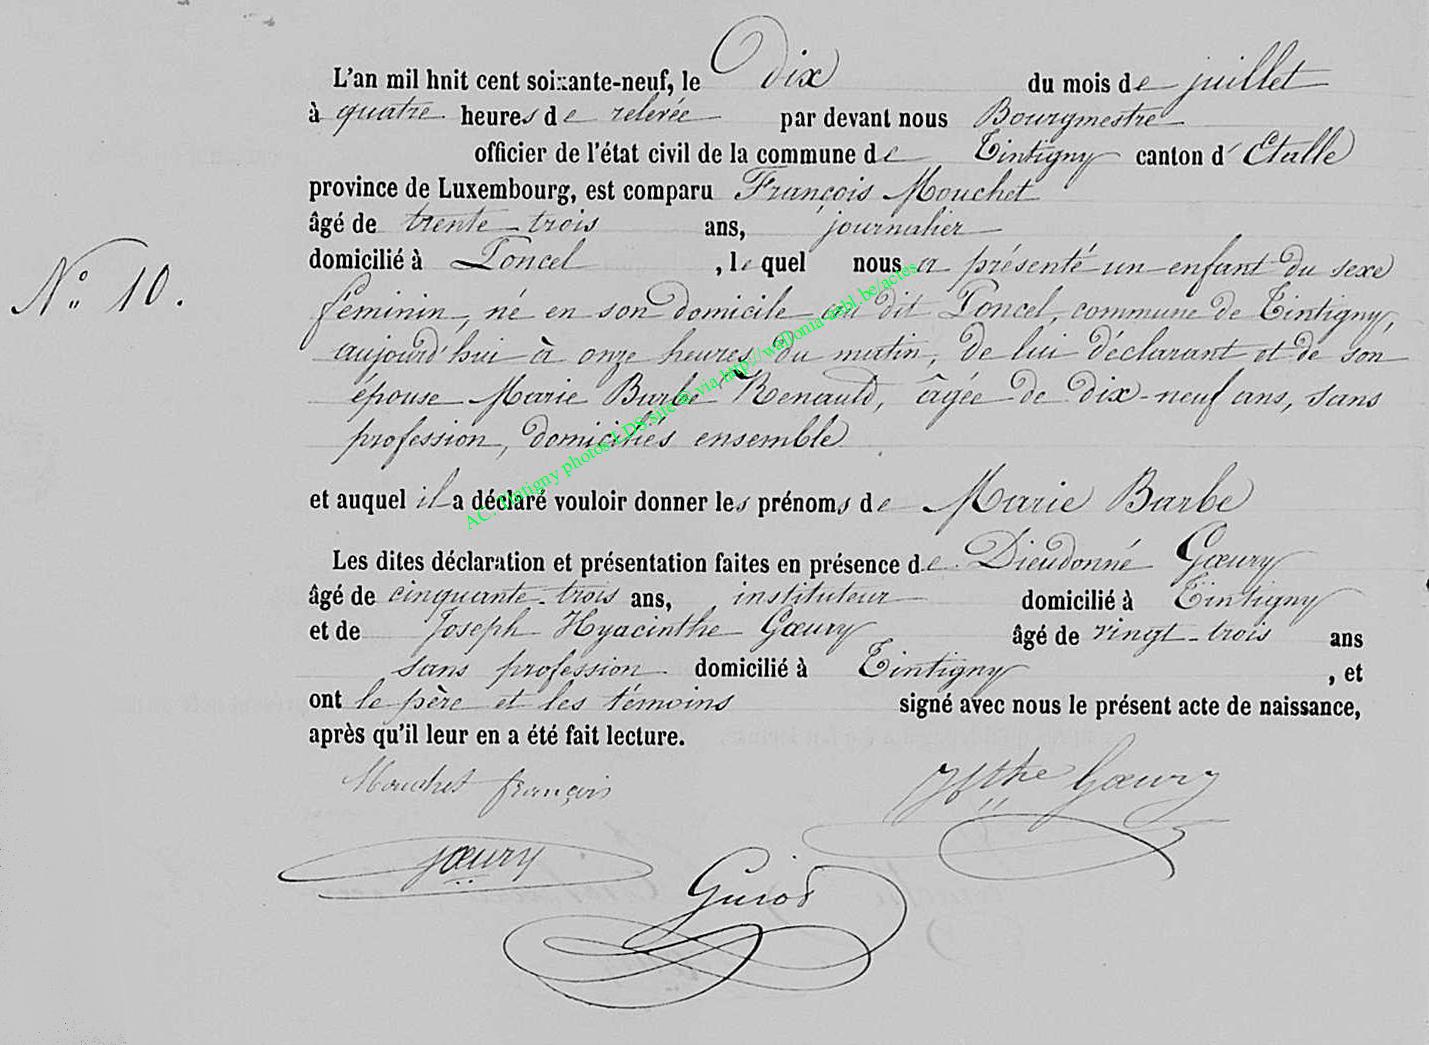 L'an mil hnit cent soixante-neuf, le Dix du mois de juillet
à quatre heures de relevée par devant nous Bourgmestre
officier de l'état civil de la commune de Tintigny canton d' Etalle
province de Luxembourg, est comparu François Mouchet
âgé de trente-trois ans, journalier
domicilié à Poncel , lequel nous a présenté un enfant du sexe
N° 10.
féminin, né en son domicile au dit Poncel, commune de Tintigny,
aujourd'hui à onze heures du matin, de lui déclarant et de son
épouse Marie Barbe Renauld, âgée de dix-neuf ans, sans
profession, domiciliés ensemble
et auquel il a déclaré vouloir donner les prénoms de Marie Barbe
Les dites déclaration et présentation faites en présence de Dieudonné Gœury
âgé de cinquante-trois ans, instituteur domicilié à Tintigny
et de Joseph Hyacinthe Gœury âgé de vingt-trois ans
sans profession domicilié à Tintigny , et
ont le père et les témoins signé avec nous le présent acte de naissance,
après qu'il leur en a été fait lecture.
Mouchet françois
Hthe Gœury
Gœury
Guiot
AC. Tintigny photos LDS.site via http://wallonia-asbl.be/actes